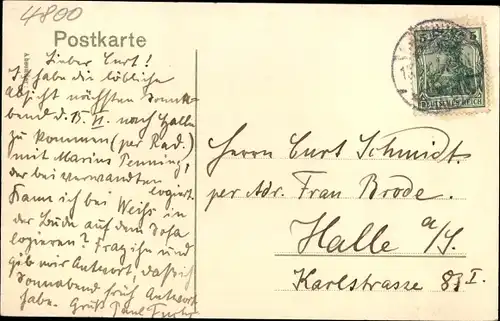 4800
Postkarte
Lieber Curt!
Ich habe die löbliche
Absicht nächsten Sonna-
bend d. 15. VI. nach Halle
zu kommen (per Rad.)
mit Marius Penning,
der bei Verwandten
logiert.
Kann ich bei Weihs in
der Bude auf dem Sofa
logieren? Frag ihn und
gib mir Antwort, daß ich
Sonnabend früh Antwort
habe. Gruß Paul
5 5
DEUTSCHES REICH
Herrn Curt Schmidt
per Adr. Frau Brode.
Halle a/S.
Karlstrasse